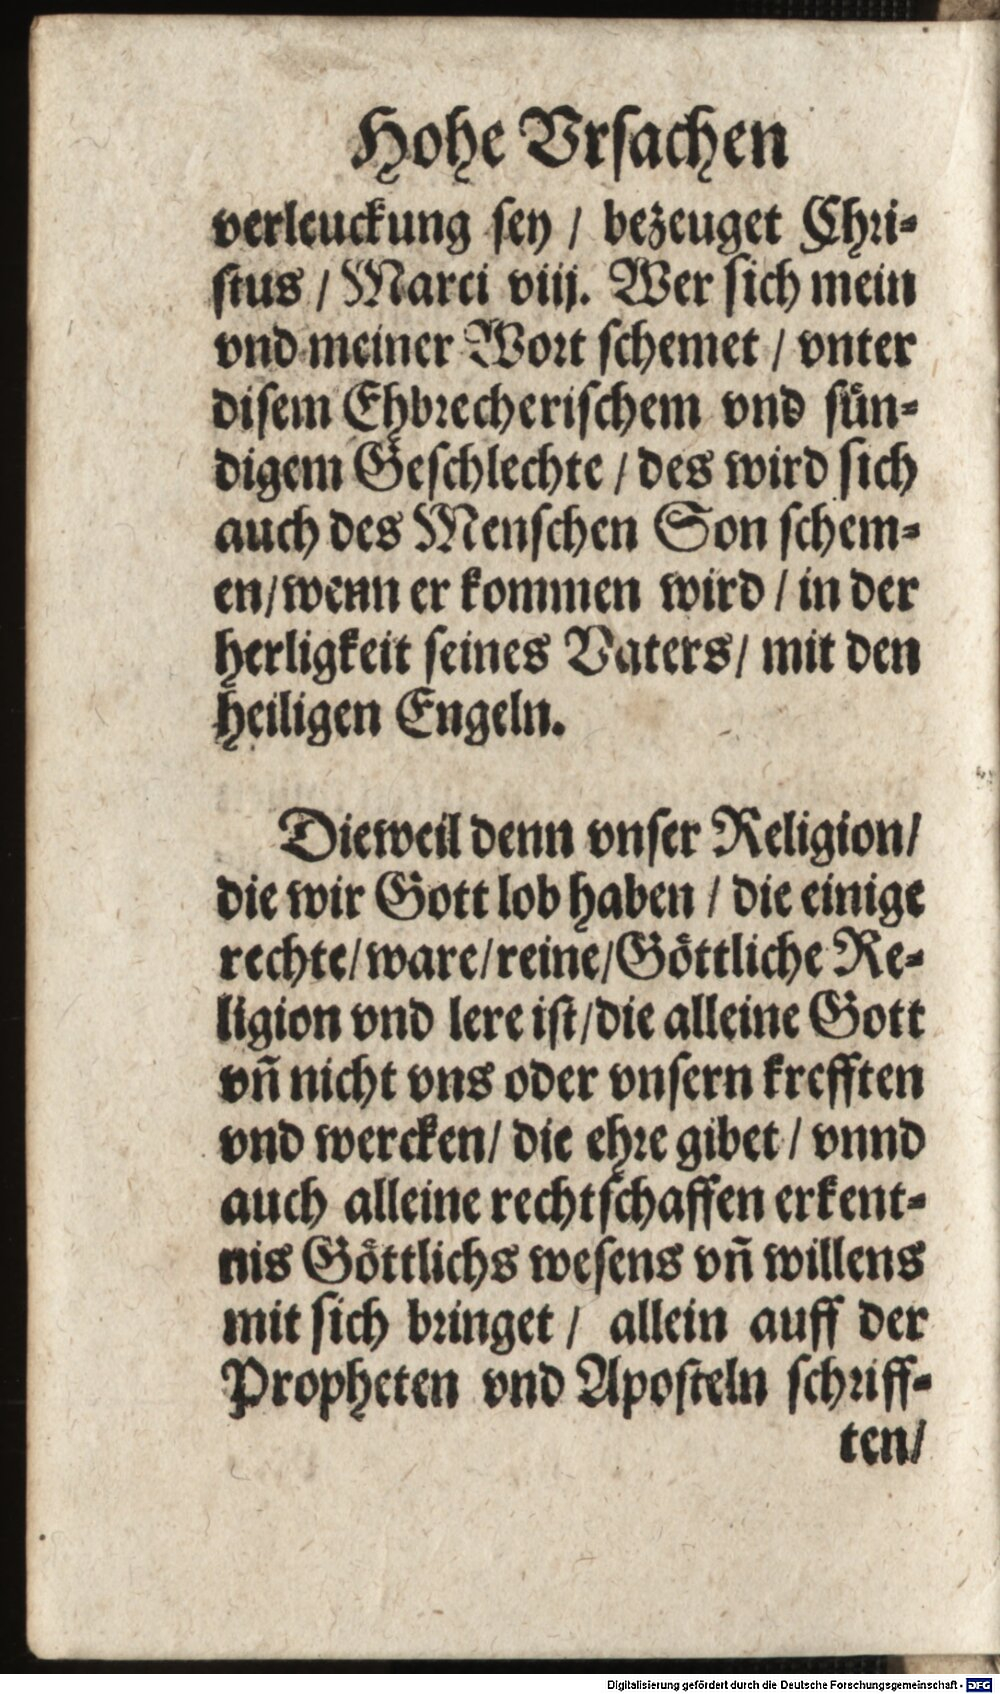 Hohe Vrsachen
verleuckung sey / bezeuget Chri-
stus / Marci viij. Wer sich mein
vnd meiner Wort schemet / vnter
disem Ehbrecherischem vnd sün-
digem Geschlechte / des wird sich
auch des Menschen Son schem-
en/wenn er kommen wird / in der
herligkeit seines Vaters/ mit den
heiligen Engeln.
Dieweil denn vnser Religion/
die wir Gott lob haben / die einige
rechte/ware/reine/Göttliche Re-
ligion vnd lere ist/die alleine Gott
vñ nicht vns oder vnsern krefften
vnd wercken/ die ehre gibet / vnnd
auch alleine rechtschaffen erkent-
nis Göttlichs wesens vñ willens
mit sich bringet / allein auff der
Propheten vnd Aposteln schriff-
ten/
Digitalisierung gefördert durch die Deutsche Forschungsgemeinschaft - DFG